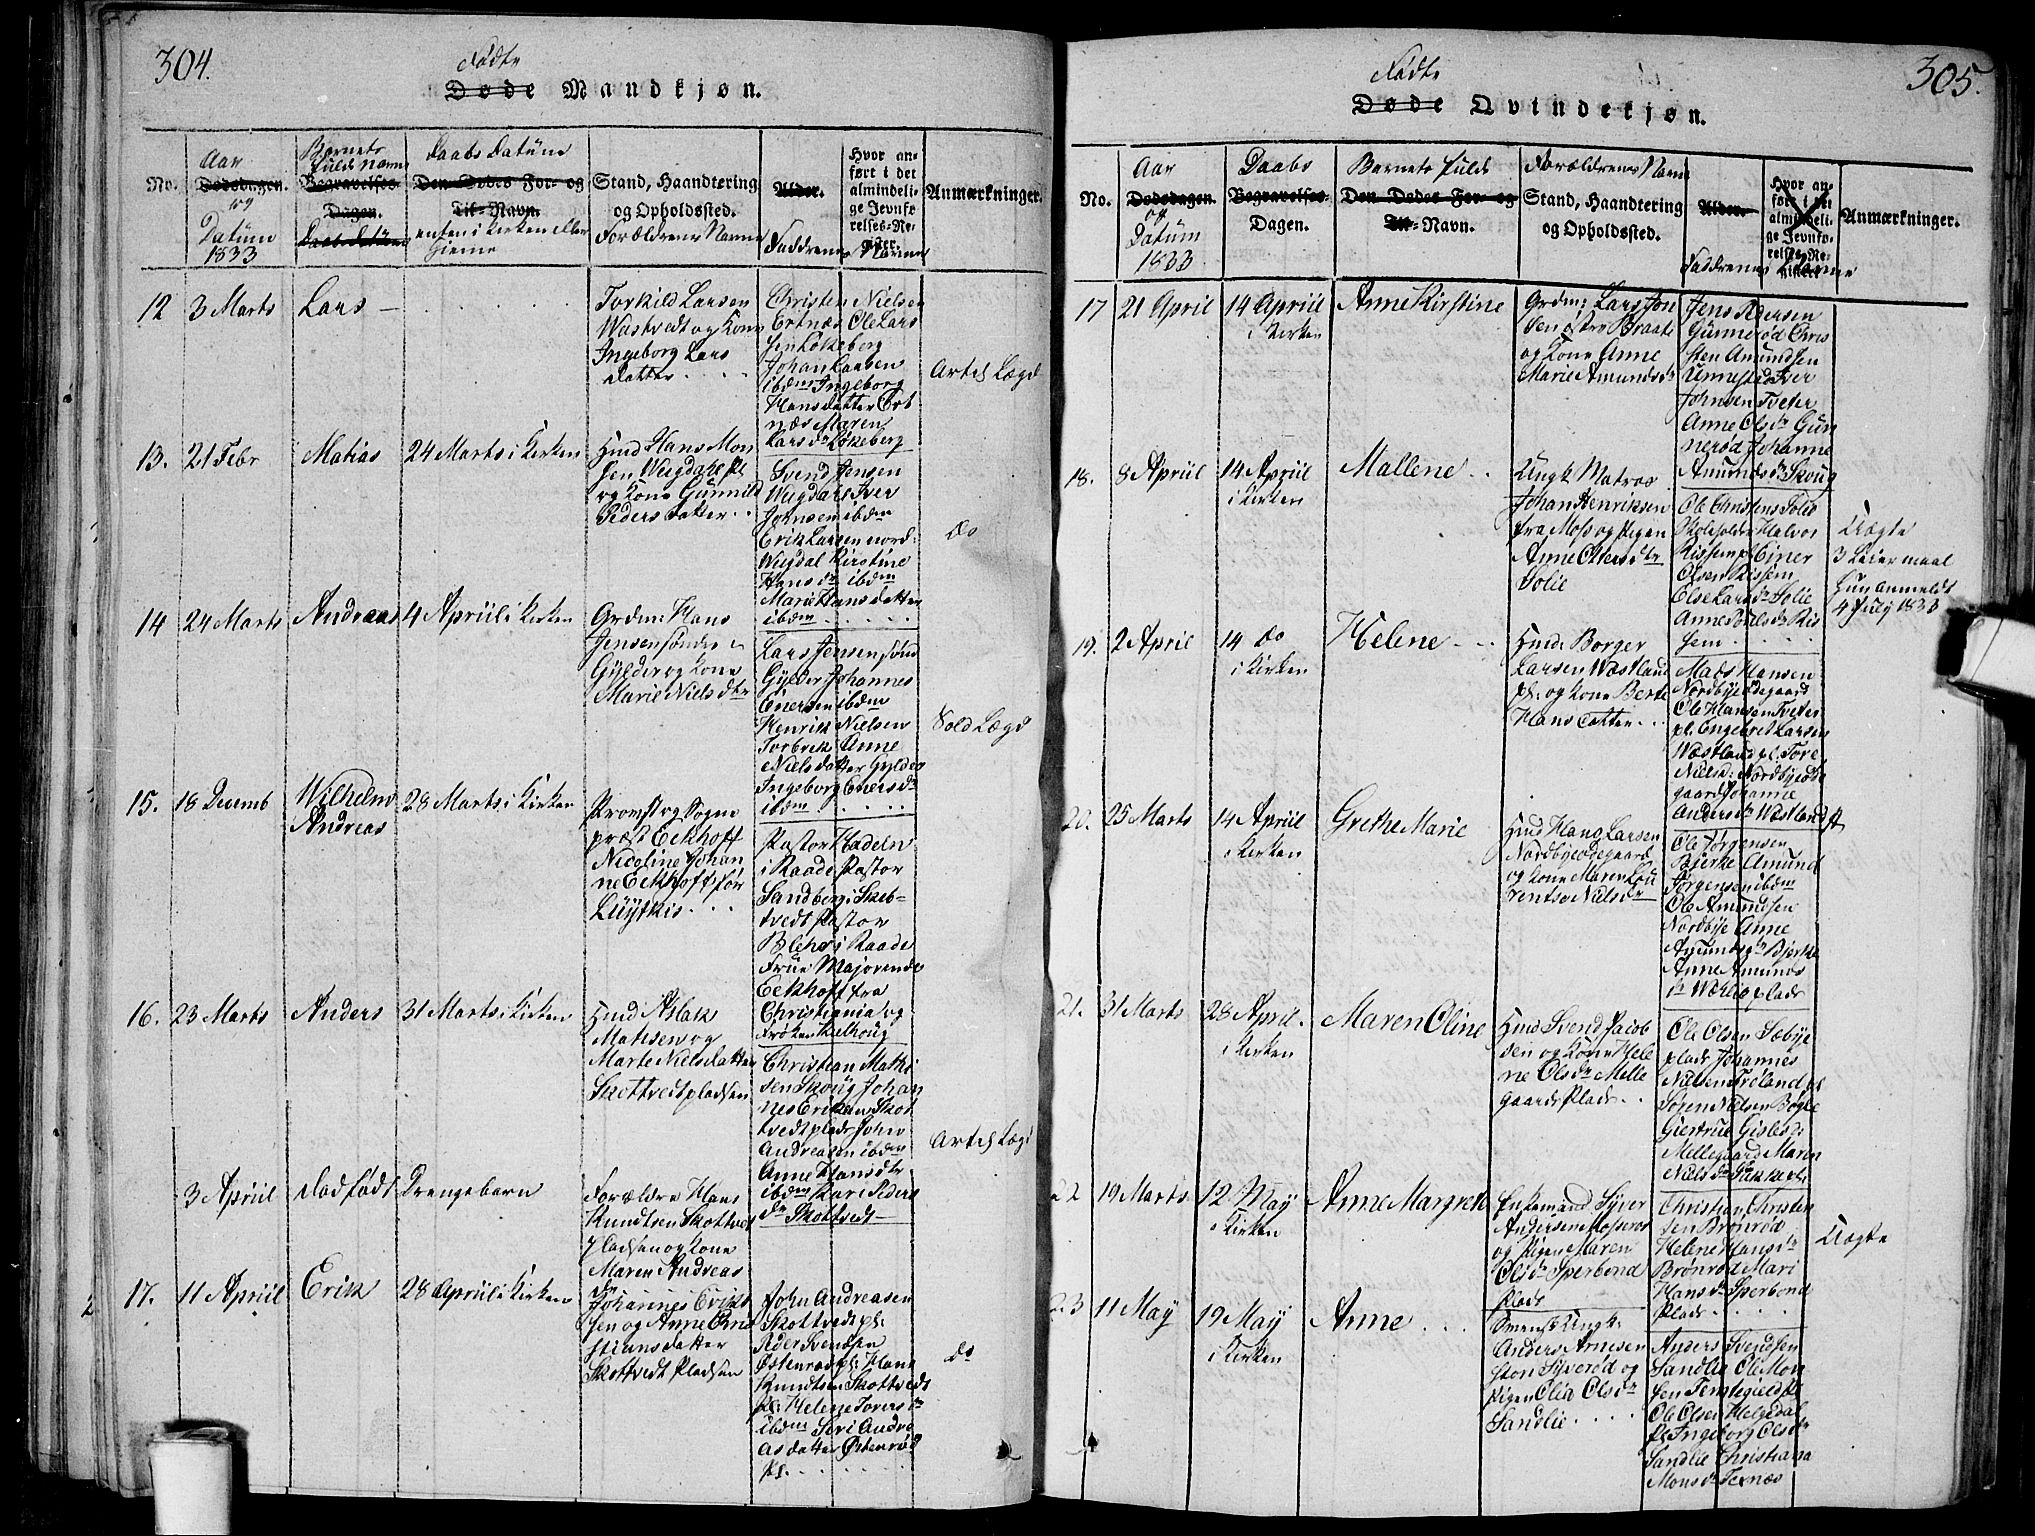 304.
Fødte
Døde Mandkjøn.
No.
Aar
Dødsdagen.
og
Datum
1833
Barnets
fulde Navn
Begravelses-
Dagen.
Daabs Datum
Daabs Datum
Den Dødes For- og
Til-Navn.
enten i Kirken eller
Hjeme
Stand, Haandtering
og Opholdssted.
Forældrenes Navne
Alder.
Faddrenes Navne
Hvor an-
ført i det
almindeli-
ge Jevnfø-
relses-Re-
gister.
Anmærkninger.
12
3 Marts
Lars
Torkild Larsen
Wastvedt og Kone
Ingeborg Lars
datter
Christen Nielsen
Ertnæs Ole Lars
sen Løkeberg
Johan Larsen
ibdm Ingeborg
Hansdatter Ert
næs Maren
Larsdr Løkeberg
Artel Lægd
13.
21 Febr
Matias
24 Marts i Kirken
Huusmd Hans Mon
sen Wugdahl pl
og Kone Gunnild
Pedersdatter
Svend Jensen
Wugdahl Iver
Johnsen ibdm
Erik Larsen nord:
Wugdal Kirstine
Hansdr ibdm
Marie Hansdatter
ibdm
do
14
24 Marts
Andreas
4 Apriil i Kirken
Grdm: Hans
Jensen søndre
Gylder og Kone
Marie Nielsdtr
Lars Jensen sønd
Gylder Johannes
Enersen ibdm
Henrik Nielsen
Torbrek Anne
Nielsdatter Gylder
Ingeborg Enersdr
ibdm
Sold Lægd
15.
18 Decemb
Wilhelm
Andreas
28 Marts i Kirken
Provst og Sogne
præst Eckhoff
Nicoline Johan
ne Eckhoff før
Lüytkis
Pastor Hadeln
i Raade Pastor
Sandberg i Skib-
tvedt Pastor
Blehr i Raade
Frue Majorinde
Eckhoff fra
Christiania og
Frøken Kielhoug
16.
23 Marts
Anders
31 Marts i Kirken
Huusmd Aslak
Matisen og
Marte Nielsdatter
Skottvedtpladsen
Christian Mathi
sen Skoug Johan
nes Eriksen Skot
tvedtplads John
Andreasen ibdm
Anne Hansdtr
ibdm Kari Peders
dr Skottvedt
Artel Lægd
3 Apriil
dødfødt
Drengebarn
Forældre Hans
Knudtsen Skottvedt
pladsen og Kone
Maren Andreas
dr
17.
11 Apriil
Erik
28 Apriil i Kirken
Johannes Eriks
sen og Anne Chri
stiansdatter
Skottvedt Pladsen
John Andreasen
Skottvedt pl:
Peder Svendsen
Østenrød pl: Hans
Knudtsen Skottvedt
pl: Helene Toresdr
ibdm Siri Andre
asdatter Østenrød
pl.
do
305.
Fødte
Døde Qvindekjøn.
No.
Aar
Dødsdagen.
og
Datum
1833
Daabs
Begravelses-
Dagen.
Barnets fulde
Den Dødes For- og
Til-Navn.
Forældrenes Navne
Stand, Haandtering
og Opholdssted.
Alder.
Faddrenes Navne
Hvor an-
ført i det
almindeli-
ge Jevnfø-
relses-Re-
gister.
Anmærkninger.
17
21 April
14 Apriil
i Kirken
Anne Kirstine
Grdm: Lars Jon
sen østre Braate
og Kone Anne
Marie Amundsdr
Jens Pedersen
Gunnerød Chris
sten Amundsen
Unnestad Iver
Johnsen Tveter
Anne Olsdr Gun
nerød Johanne
Amundsdr Skoug
18.
8 Apriil
14 Apriil
i Kirken
Mallene
Ungk Matros
Johan Henriksen
fra Moss og Pigen
Anne Ottersdtr
Solie
Ole Christens Solie
Holeholdt Halvor
Rissem pl Einer
Olsen Rissem
Else Larsdr Solie
Anne Nielsdr Ris
sem
Uægte
3 Leiermaal
Hun anmeldt
4 July 1833
19.
2 April
14 do
i Kirken
Helene
Huusmd Borger
Larsen Wæstland
pl. og Kone Berte
Hansdatter
Mads Hansen
Nordbye ødegaard
Ole Hansen Tveter
pl. Engebret Larsen
Wæstland pl. Tore
Nielsd: Nordbye øde
gaard Johanne
Andersdr Wæstland pl
20.
25 Marts
14 Apriil
i Kirken
Grethe Marie
Huusmd Hans Larsen
Nordbyeødegaard
og Kone Maren Lou
rentse Nielsdr
Ole Jørgensen
Bjerke Amund
Jørgensen ibdm
Ole Amundsen
Nordbye Anne
Amundsdr Bjerke
Anne Amunds
dr Wærlie plads
21.
31 Marts
28 April
i Kirken
Maren Oline
Huusmd Svend Jacob
sen og Kone Hele
ne Olsdr Melle
gaards Plads
Ole Olsen Sæbye
plads Johannes
Nielsen Frøland pl
Søren Nielsen Bøgle
Giertrue Gislesd:
Mellegaard Maren
Nielsdr Løkke pl:
22
19 Marts
12 May
i Kirken
Anne Margrete
Enkemand Syver
Andersen Mosserød
og Pigen Maren
Olsdr Sperbond
plads
Christian Christen
sen Brønrød
Helene Hansdr
Brønrød Mari
Hansdr Sperbond
plads
Uægte
23
11 May
19 May
i Kirken
Anne
Svensk Ungk:
Anders Arnesen
ston Syverød og
Pigen Olia Olsdr
Sandlie
Anders Svendsen
Sandlie Ole Mon
sen Temtegied pl
Ole Olsen Helgedal
pl Ingeborg Olsdr
Sandlie Christiana
Monsdr Ternæs